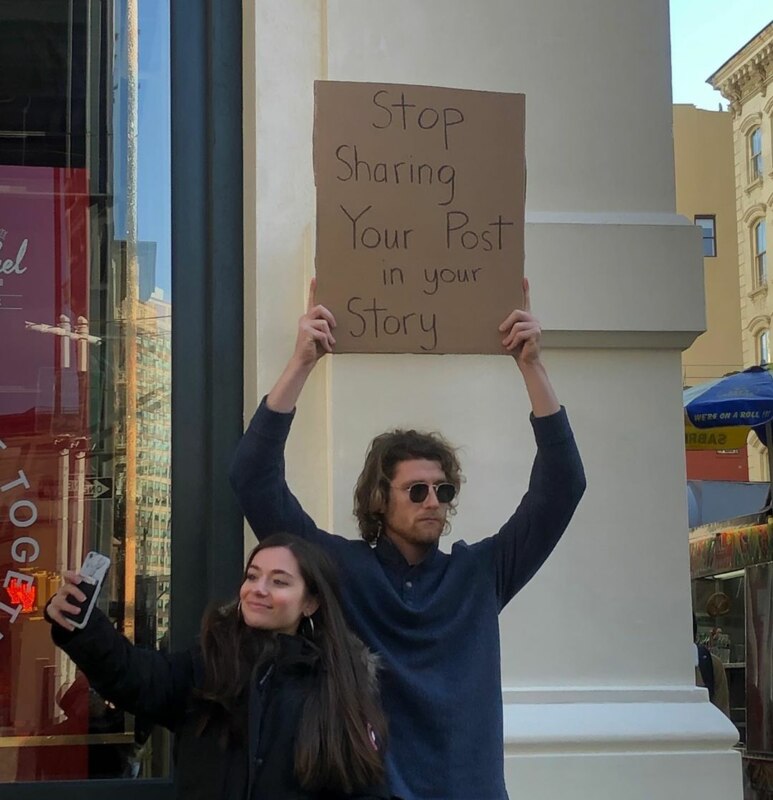 Stop
Sharing
Your Post
in your
Story
WE'RE ON A ROLL